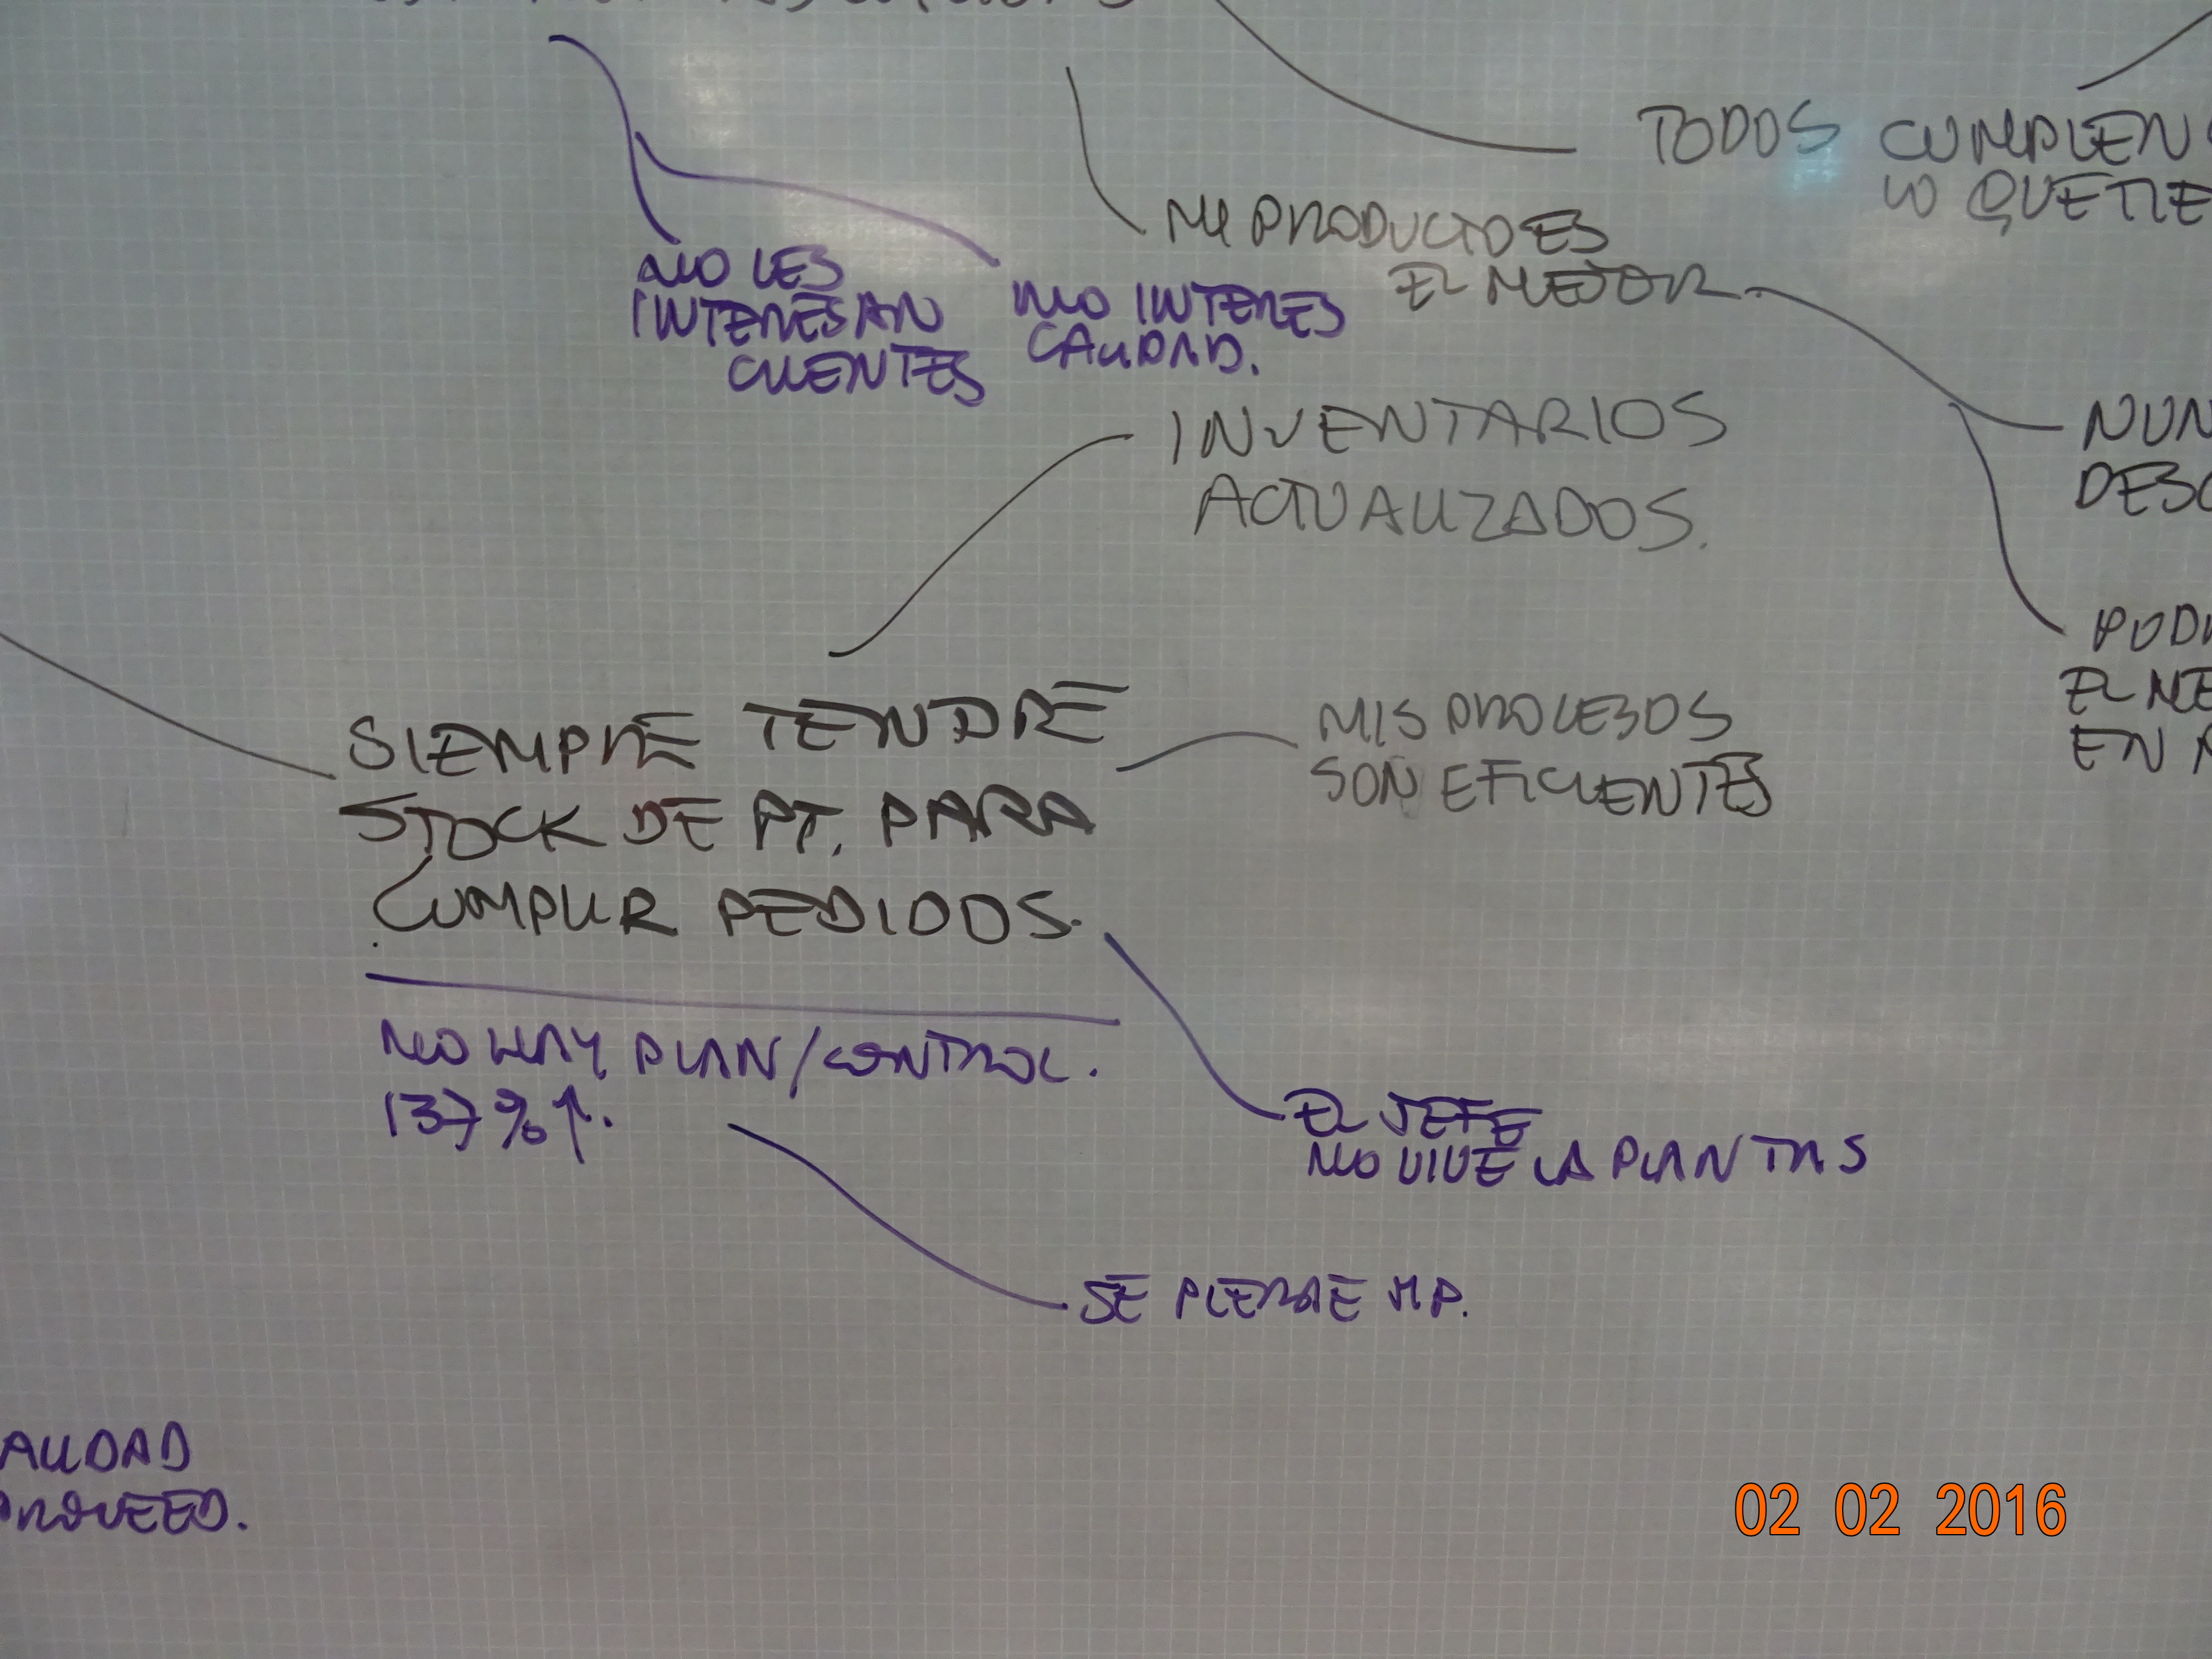 TODOS CUMPLEN
LO QUE TIE
MI PRODUCTO ES
EL MEJOR
NO LES
INTERESAN
CLIENTES
NO INTERES
CALIDAD.
INVENTARIOS
ACTUALIZADOS.
NUN
DESC
POD
EL ME
EN
SIEMPRE TENDRE
STOCK DE PT. PARA
CUMPLIR PEDIDOS.
MIS PROCESOS
SON EFICIENTES
NO HAY PLAN/CONTROL.
137%↑.
EL JEFE
NO VIVE LA PLANTAS
SE PIERDE MP.
ALIDAD
PROVEED.
02 02 2016